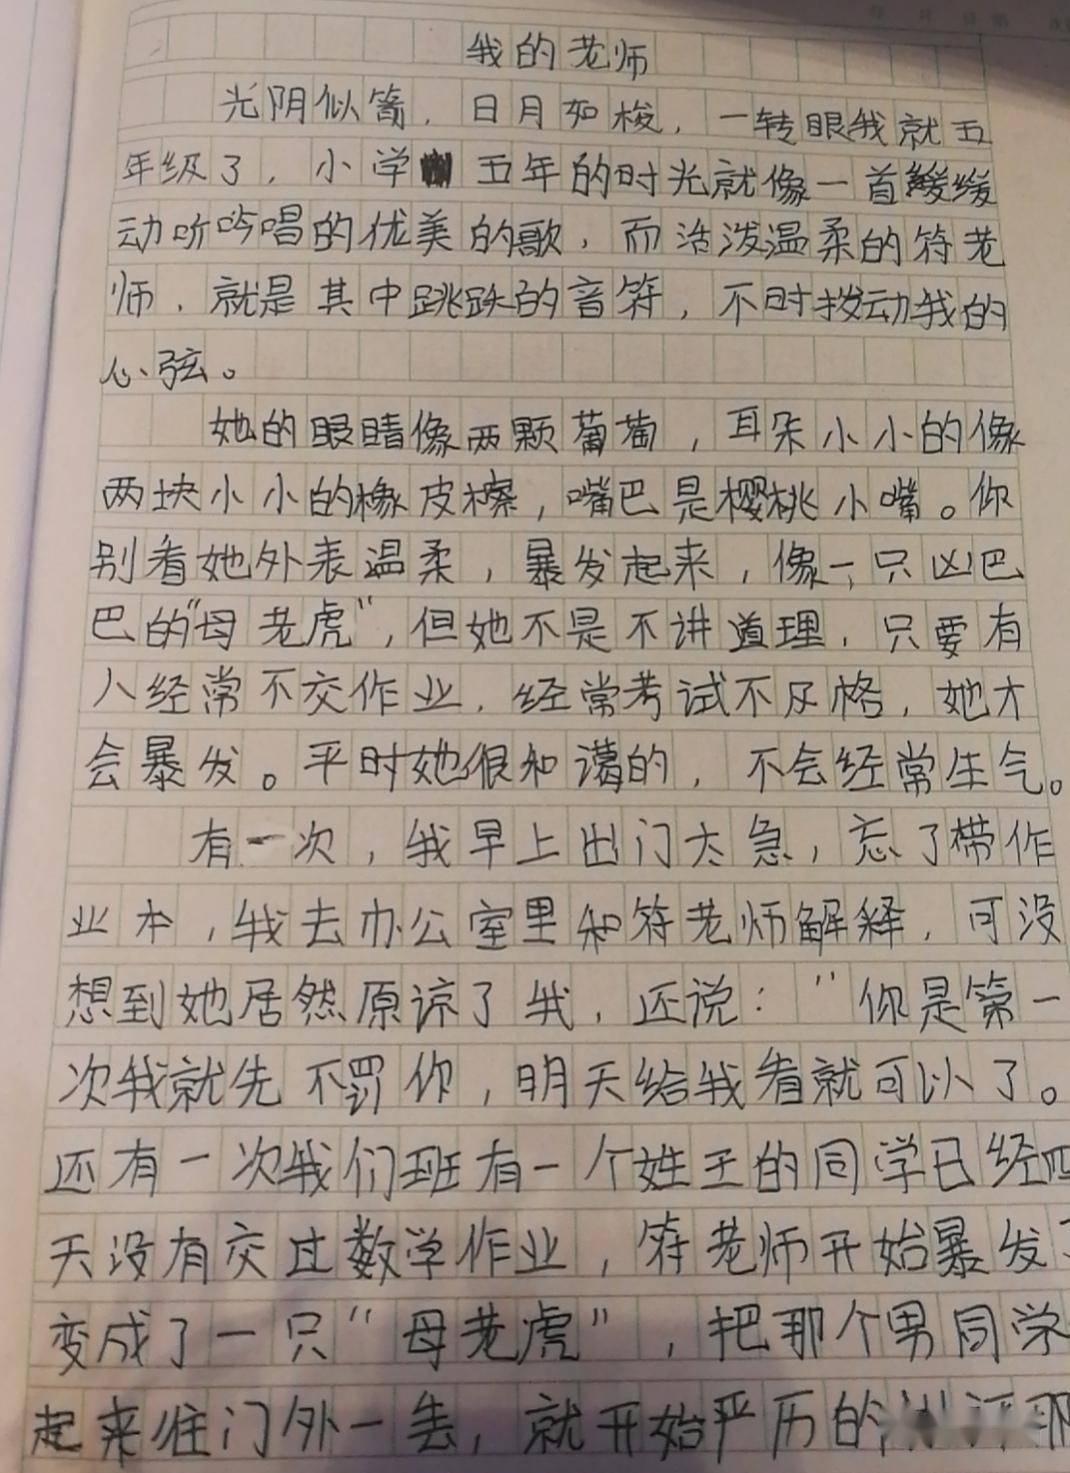 我的老师
光阴似箭，日月如梭，一转眼我就五
年级了，小学五年的时光就像一首缓缓
动听吟唱的优美的歌，而活泼温柔的符老
师，就是其中跳跃的音符，不时拨动我的
心弦。
她的眼睛像两颗葡萄，耳朵小小的像
两块小小的橡皮檫，嘴巴是樱桃小嘴。你
别看她外表温柔，暴发起来，像一只凶巴
巴的“母老虎”，但她不是不讲道理，只要有
人经常不交作业，经常考试不及格，她才
会暴发。平时她很和蔼的，不会经常生气。
有一次，我早上出门太急，忘了带作
业本，我去办公室里和符老师解释，可没
想到她居然原谅了我，还说：“你是第一
次我就先不罚你，明天给我看就可以了。
还有一次我们班有一个姓王的同学已经四
天没有交过数学作业，符老师开始暴发了
变成了一只“母老虎”，把那个男同学
起来往门外一丢，就开始严历的